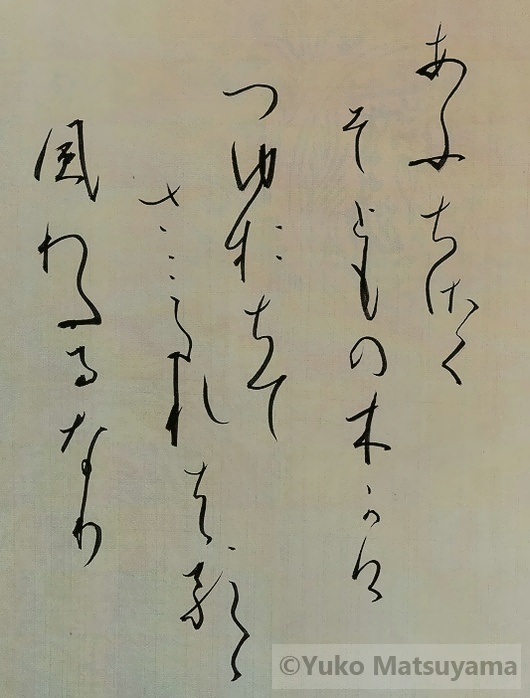 あふちさく
そともの木かけ
つゆおちて
さみたれはるゝ
風わたるなり
©Yuko Matsuyama